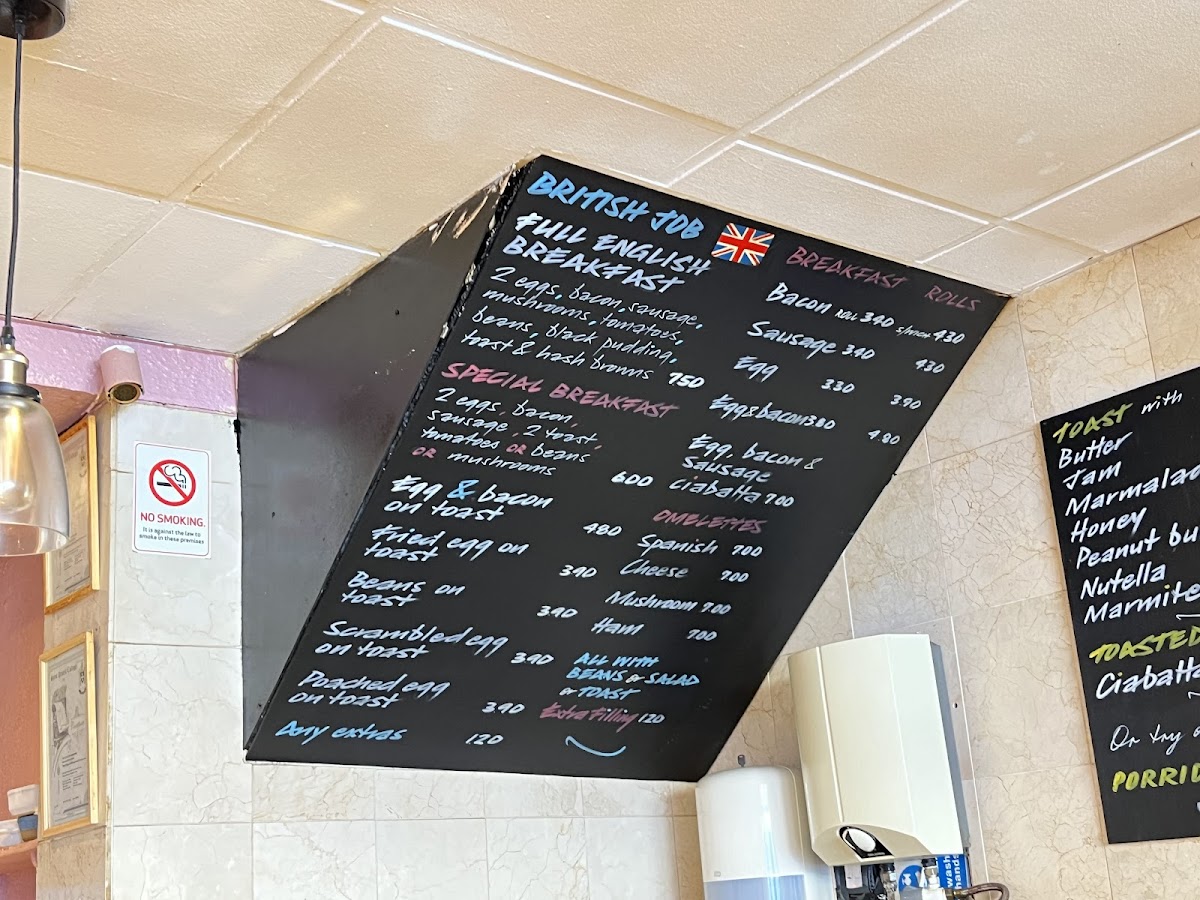 BRITISH JOB
FULL ENGLISH
BREAKFAST
2 eggs, bacon, sausage,
mushrooms, tomatoes,
beans, black pudding,
toast & hash browns 750
SPECIAL BREAKFAST
2 eggs, bacon,
sausage, 2 toast,
tomatoes OR beans
OR mushrooms 600
Egg & bacon
on toast 480
Fried egg on
toast 390
Beans on
toast 390
Scrambled egg
on toast 390
Poached egg
on toast 390
Any extras 120
BREAKFAST ROLLS
Bacon ROLL 340 S/WICH 430
Sausage 340 430
Egg 330 390
Egg & bacon 380 480
Egg, bacon &
Sausage
Ciabatta 700
OMBLETTES
Spanish 700
Cheese 700
Mushroom 700
Ham 700
ALL WITH
BEANS or SALAD
or TOAST
Extra Filling 120
NO SMOKING.
It is against the law to
smoke in these premises
TOAST with
Butter
Jam
Marmalad
Honey
Peanut bu
Nutella
Marmite
TOASTED
Ciabatta
Or try
PORRID
wash
hands